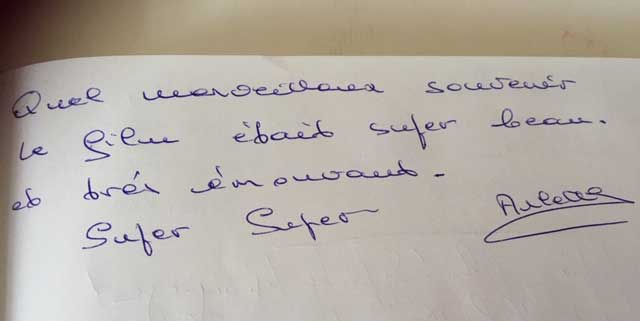 Quel merveilleux souvenir
Le film était super beau.
et très émouvant.
Super Super
Arlette